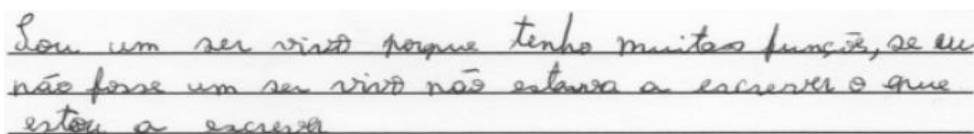 Sou um ser vivo porque tenho muitas funções, se eu
não fosse um ser vivo não estava a escrever o que
estou a escrever